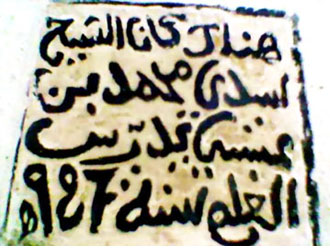 هنا كان الشيخ
سيدي محمد بن
عيسى يدرس
العلم سنة ٩٤٦